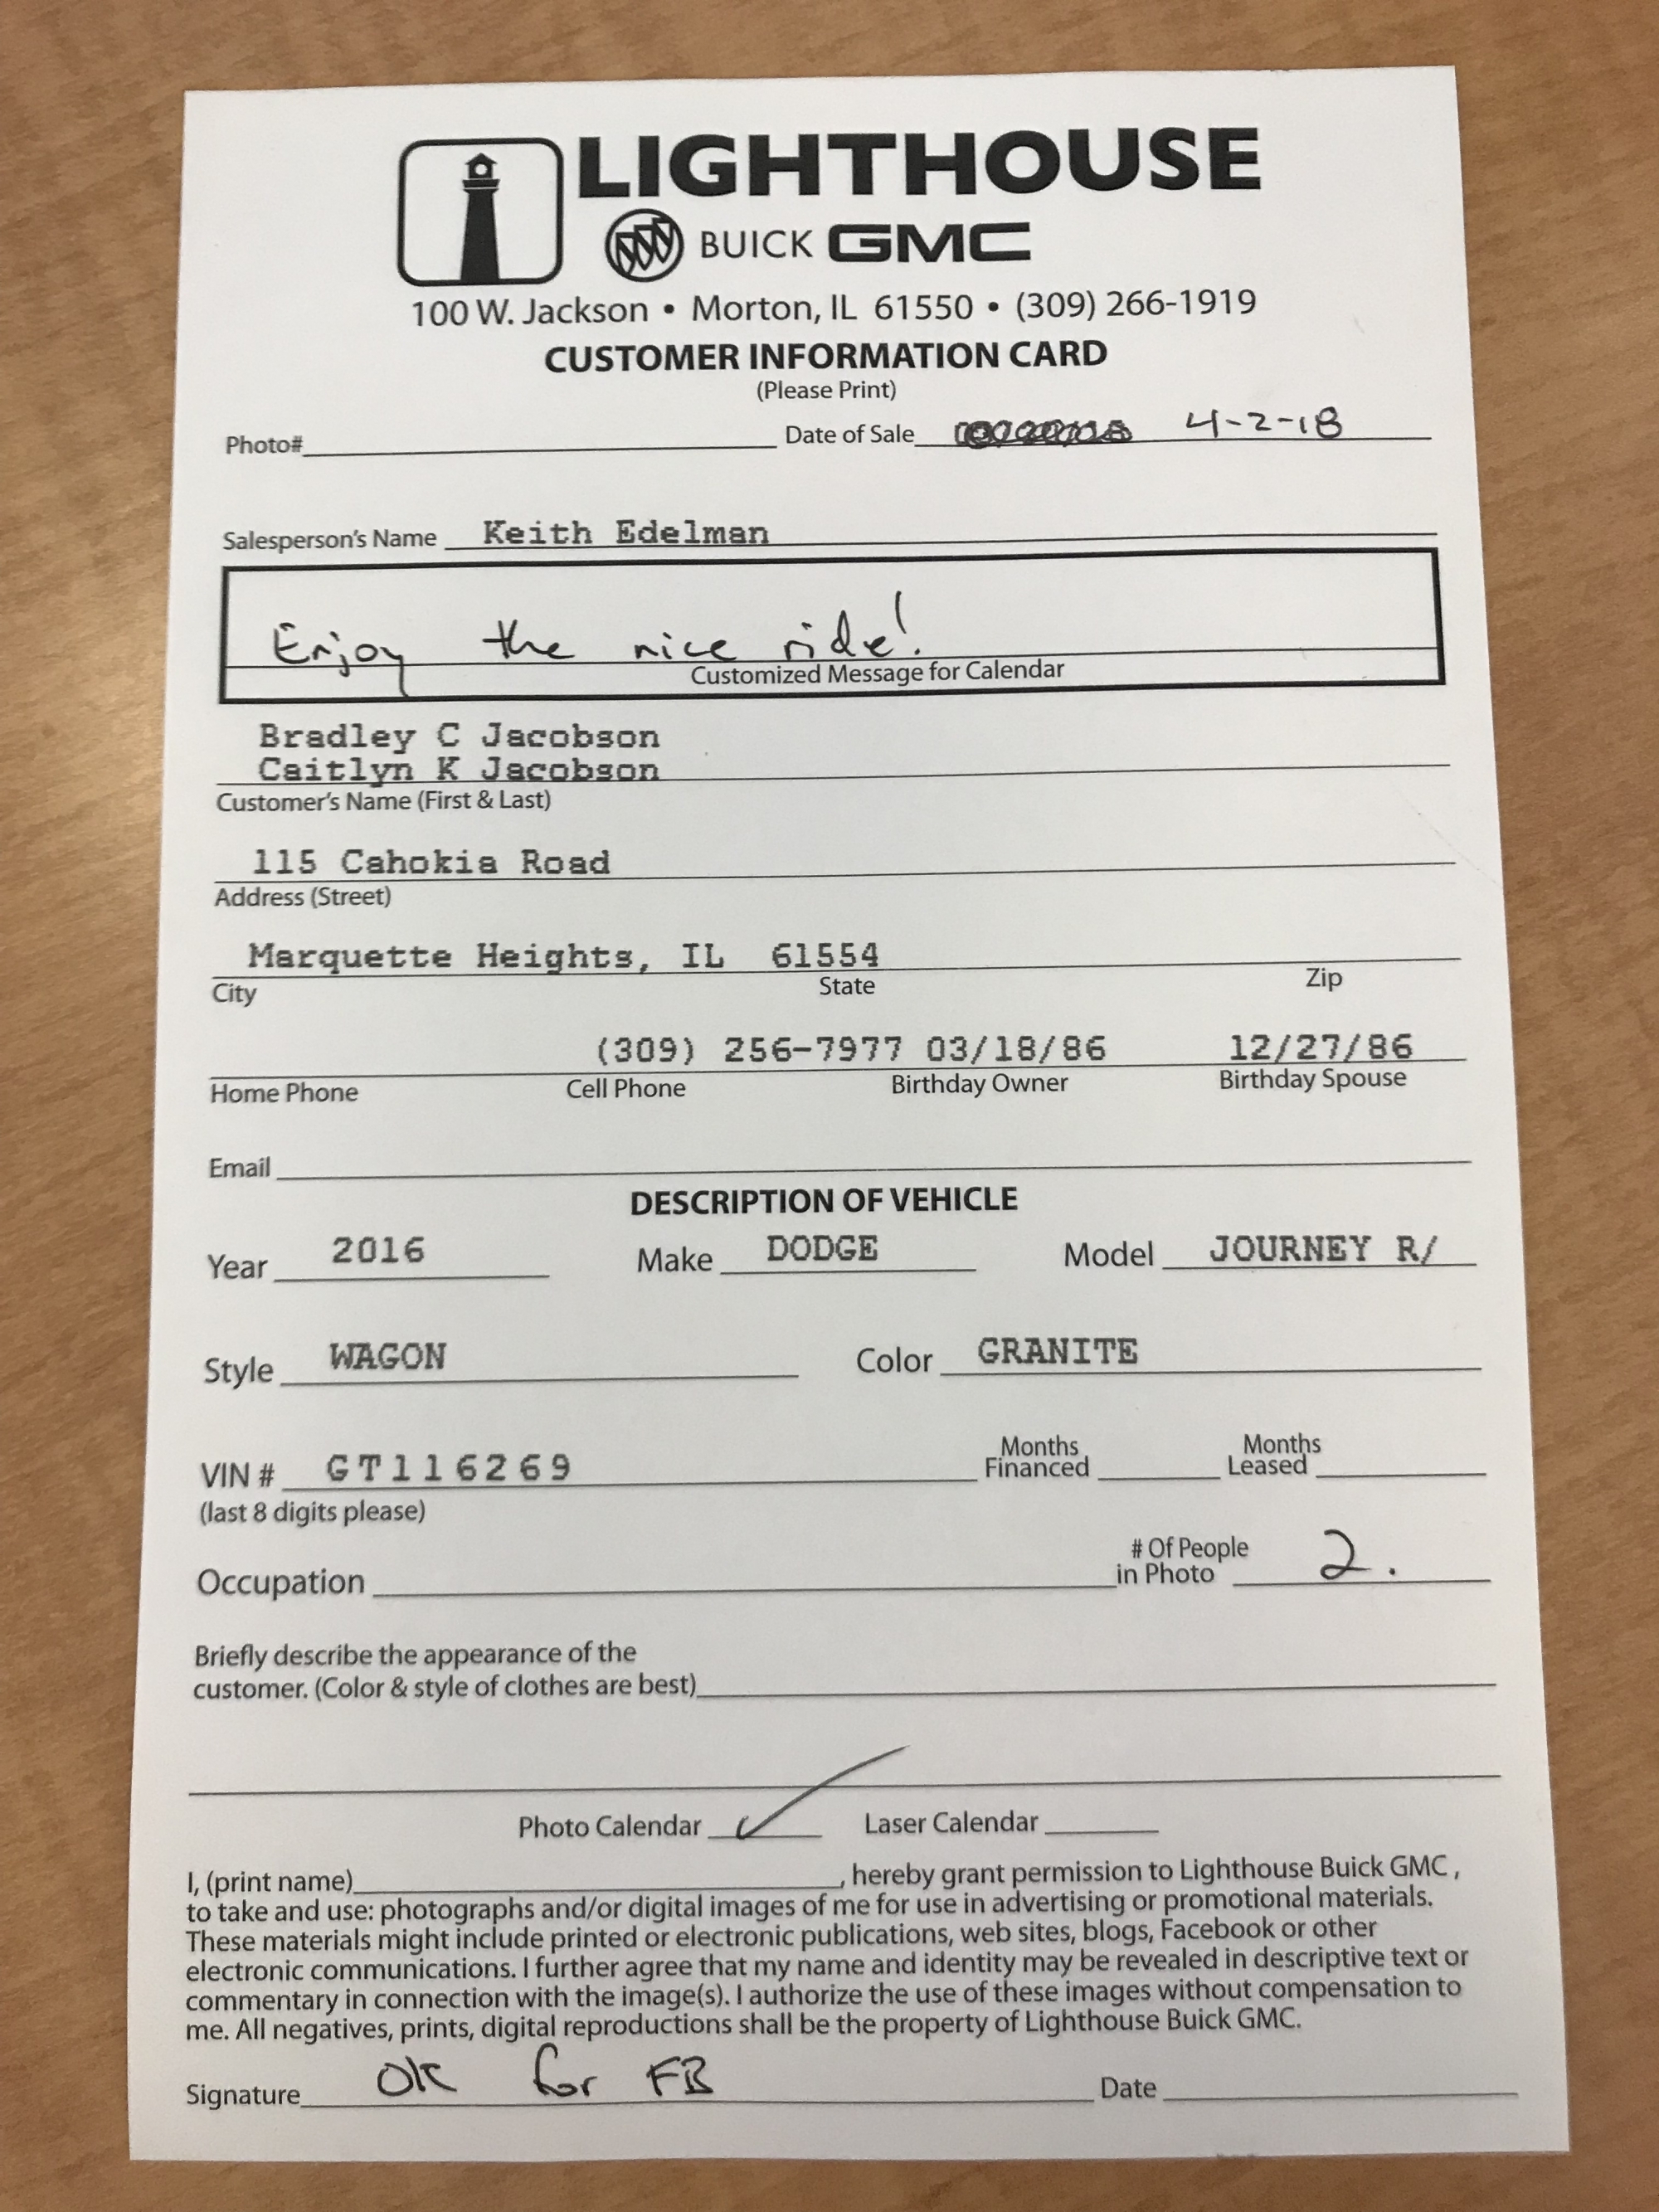 LIGHTHOUSE
BUICK GMC
100 W. Jackson • Morton, IL 61550 • (309) 266-1919
CUSTOMER INFORMATION CARD
(Please Print)
Photo# Date of Sale 4-2-18
Salesperson's Name Keith Edelman
Enjoy the nice ride!
Customized Message for Calendar
Bradley C Jacobson
Caitlyn K Jacobson
Customer's Name (First & Last)
115 Cahokia Road
Address (Street)
Marquette Heights, IL 61554
City State Zip
(309) 256-7977 03/18/86 12/27/86
Home Phone Cell Phone Birthday Owner Birthday Spouse
Email
DESCRIPTION OF VEHICLE
Year 2016 Make DODGE Model JOURNEY R/
Style WAGON Color GRANITE
VIN # GT116269 Months Financed Months Leased
(last 8 digits please)
Occupation # Of People in Photo 2.
Briefly describe the appearance of the
customer. (Color & style of clothes are best)
Photo Calendar ✓ Laser Calendar
I, (print name) , hereby grant permission to Lighthouse Buick GMC ,
to take and use: photographs and/or digital images of me for use in advertising or promotional materials.
These materials might include printed or electronic publications, web sites, blogs, Facebook or other
electronic communications. I further agree that my name and identity may be revealed in descriptive text or
commentary in connection with the image(s). I authorize the use of these images without compensation to
me. All negatives, prints, digital reproductions shall be the property of Lighthouse Buick GMC.
Signature OK for FB Date